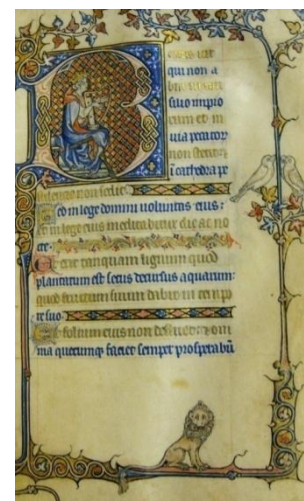 qui non a
suo impio
rum et in
via peccator
non stetit
i cathedra pe
stilencie non sedit.
Sed in lege domini voluntas eius:
et in lege eius meditabitur die ac no
cte.
Et erit tanquam lignum quod
plantatum est secus decursus aquarum:
quod fructum suum dabit in temp
re suo.
Et folium eius non defluet: et om
nia quecumq faciet semper prosperabu